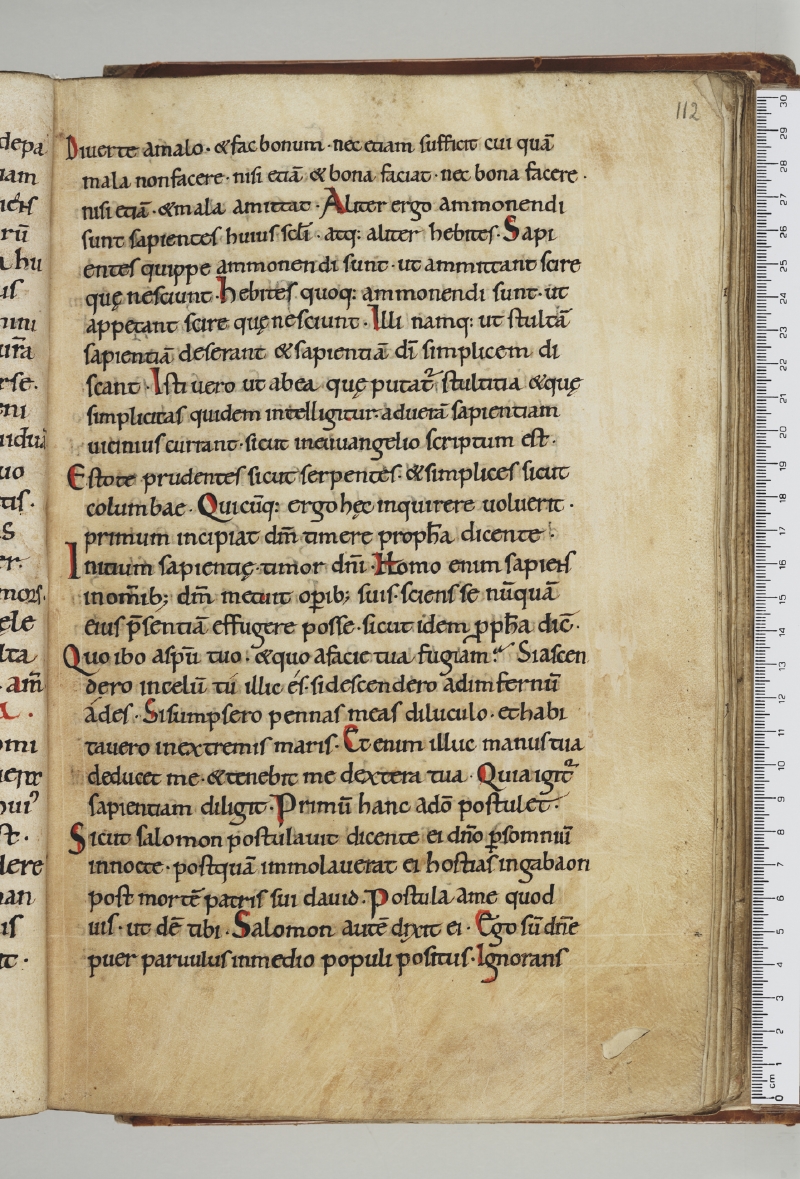 112
Diuerte amalo · &fac bonum · nec etiam sufficit cui quā
mala nonfacere · nisi etiā & bona faciat · nec bona facere ·
nisi etiā · &mala amittat · Aliter ergo ammonendi
sunt sapientes huius scłi · atq: aliter hebites · Sapi
entes quippe ammonendi sunt · ut ammittant scire
quę nesciunt · hebites quoq: ammonendi sunt · ut
appetant scire quę nesciunt · Illi namq: ut stultā
sapientiā deserant &sapientiā dī simplicem di
scant · Isti uero ut abea quę putat᷑ stultitia &quę
simplicitas quidem intelligitur aduerā sapientiam
uicinius currant · sicut ineuuangelio scriptum est ·
Estote prudentes sicut serpentes · &simplices sicut
columbae · Quicūq: ergo hęc inquirere uoluerit ·
primum incipiat dm̄ timere propħa dicente ·
Initium sapientię · timor dn̄i · Homo enim sapiens
inomīb; dm̄ metuit opīb; suis · sciens se nūquā
eius p̄sentiā effugere posse · sicut idem ꝓpħa dic̄ ·
Quo ibo aspū tuo · &quo afacie tua fugiam · Siascen
dero incelū tú illic és · sidescendero adinfernū
ádes · Sisumpsero pennas meas diluculo · ethabi
tauero inextremis maris · Etenim illuc manus tua
deducet me · &tenebit me dextera tua · Quia igit᷑
sapientiam diligit · Primū hanc adō postulet ·
Sicut salomon postulauit dicente ei dn̄o ꝑsomniū
innocte · postquā immolauerat ei hostias ingabaon
post mortē patris sui dauid · Postula ame quod
uis · ut dē tibi · Salomon autē dixit ei · Ego sū dn̄e
puer paruulus inmedio populi positus · Ignorans